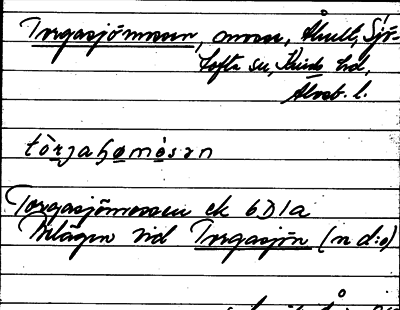 Torgasjömossen, mosse, Ahult, Sjö-
tofta sn, Kinds hd,
Älvsb. l.
tòrjahømòsən
Torgasjömossen ek 6D1a
Belägen vid Torgasjön (n d:o)